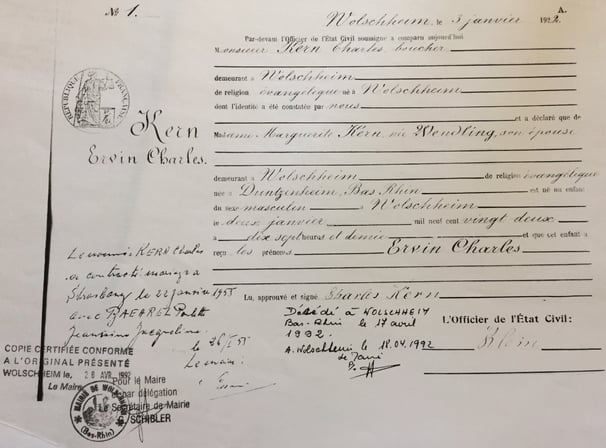 № 1.
A.
Wolschheim, le 3 janvier 1922.
Par-devant l'Officier de l'État Civil soussigné a comparu aujourd'hui
Monsieur Kern Charles, boucher
demeurant à Wolschheim
de religion évangélique né à Wolschheim
dont l'identité a été constatée par nous
et a déclaré que de
Madame Marguerite Kern, née Wendling, son épouse
RÉPUBLIQUE FRANÇAISE
Kern
Ervin Charles.
demeurant à Wolschheim de religion évangélique
née à Duntzenheim, Bas Rhin est né un enfant
du sexe masculin à Wolschheim
le deux janvier mil neuf cent vingt deux
à dix sept heures et demie et que cet enfant a
reçu les prénoms Ervin Charles
Lu, approuvé et signé Charles Kern
L'Officier de l'État Civil:
Klein
Le nommé KERN Charles
a contracté mariage à
Strasbourg le 22 janvier 1955
avec
Jeannine Jacqueline
le 26/I 55
Le maire
Décédé à WOLSCHHEIM
Bas-Rhin le 17 avril
1992.
A Wolschheim le 18.04.1992
COPIE CERTIFIÉE CONFORME
A L'ORIGINAL PRÉSENTÉ
WOLSCHHEIM le, 28 AVR. 1992
Le Maire
Pour le Maire
par délégation
Le Secrétaire de Mairie
SCHIBLER
MAIRIE DE WOLSCHHEIM
(Bas-Rhin)